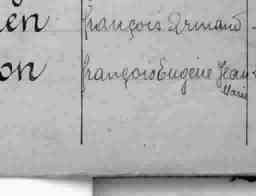 en françois Armand -
on françois Eugène Jean-
Marie